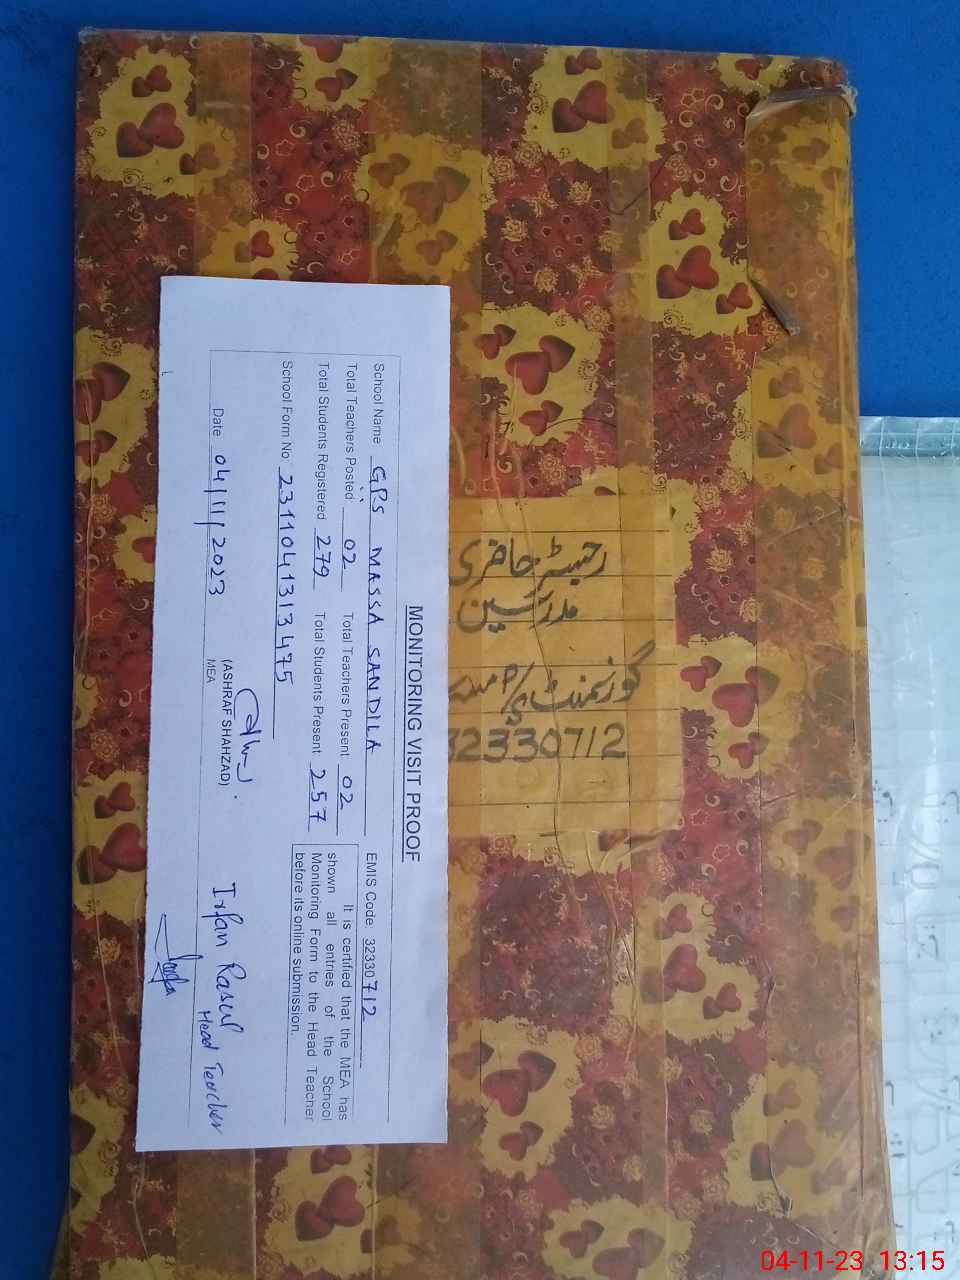 MONITORING VISIT PROOF
School Name GPS MASSA SANDILA EMIS Code: 32330712
Total Teachers Posted: 02 Total Teachers Present 02
Total Students Registered 279 Total Students Present 257
School Form No: 2311041313475
It is certified that the MEA has
shown all entries of the School
Monitoring Form to the Head Teacher
before its online submission.
Date 04/11/2023
(ASHRAF SHAHZAD)
MEA
Irfan Rasul
Head Teacher
رجسٹر حاضری
مدرسین
گورنمنٹ پ/م
32330712
04-11-23 13:15